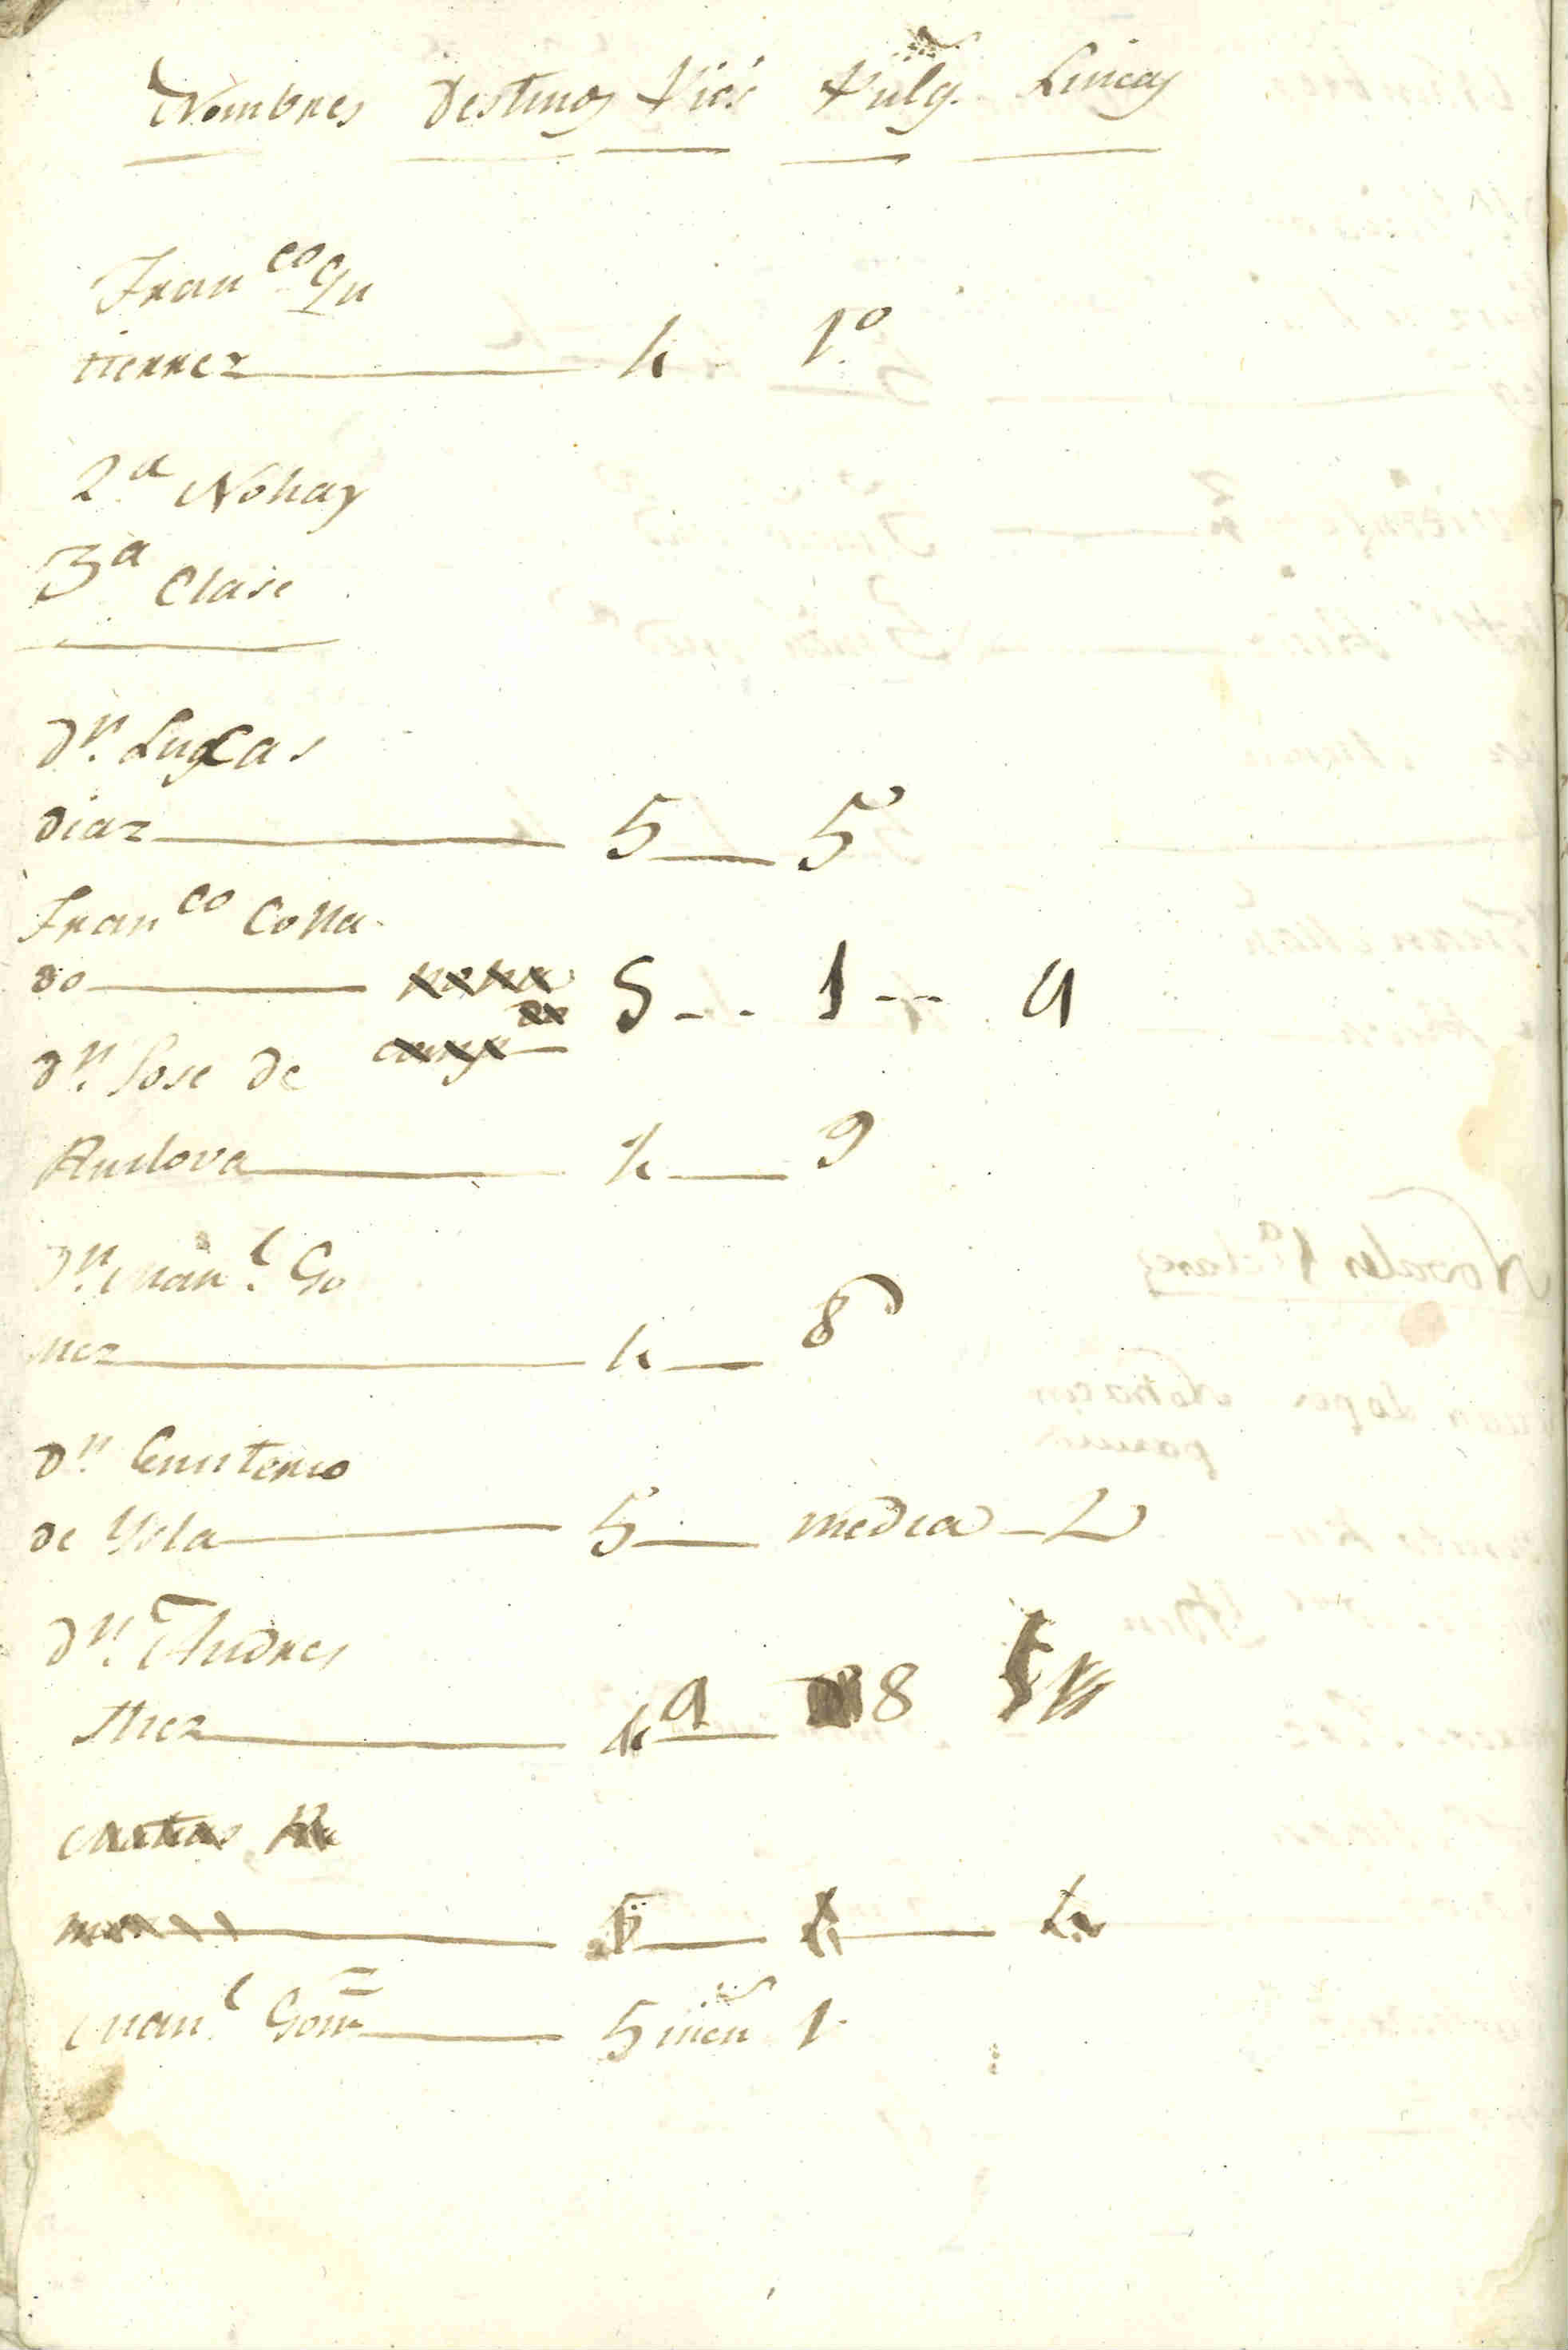 Nombres Destinos Pies Pulg. Lineas
Fran.co Gu
tierrez 4 1º
2.a No hay
3.a Clase
D.n Lucas
Diaz 5 5
Fran.co Colla-
do 5 1 9
D.n Jose de
Rudova 4 9
D.n Man.l Go
mez 4 8
D.n Emeterio
de Ysla 5 media 2
D.n Andres
Diez 4 8
Matas
5
Man.l Gom 5 men 1